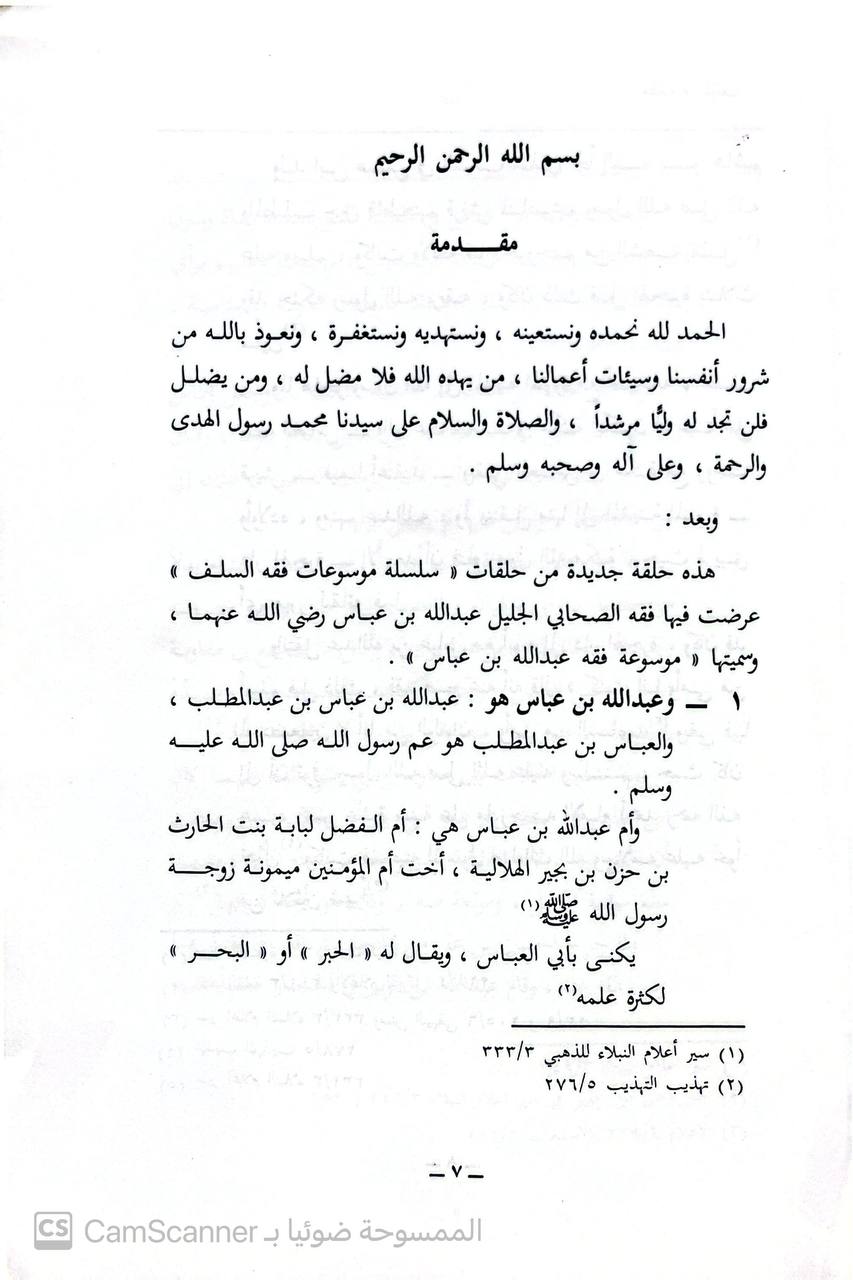 بسم الله الرحمن الرحيم
مقدمة
الحمد لله نحمده ونستعينه ، ونستهديه ونستغفرة ، ونعوذ بالله من
شرور أنفسنا وسيئات أعمالنا ، من يهده الله فلا مضل له ، ومن يضلل
فلن تجد له وليًّا مرشداً ، والصلاة والسلام على سيدنا محمد رسول الهدى
والرحمة ، وعلى آله وصحبه وسلم .
وبعد :
هذه حلقة جديدة من حلقات « سلسلة موسوعات فقه السلف »
عرضت فيها فقه الصحابي الجليل عبدالله بن عباس رضي الله عنهما ،
وسميتها « موسوعة فقه عبدالله بن عباس » .
١ ــ وعبدالله بن عباس هو : عبدالله بن عباس بن عبدالمطلب ،
والعباس بن عبدالمطلب هو عم رسول الله صلى الله عليه
وسلم .
وأم عبدالله بن عباس هي : أم الفضل لبابة بنت الحارث
بن حزن بن بجير الهلالية ، أخت أم المؤمنين ميمونة زوجة
رسول الله ﷺ(١)
يكنى بأبي العباس ، ويقال له « الحبر » أو « البحر »
لكثرة علمه(٢)
(١) سير أعلام النبلاء للذهبي ٣٣٣/٣
(٢) تهذيب التهذيب ٢٧٦/٥
ــ ٧ ــ
CS CamScanner الممسوحة ضوئيا بـ